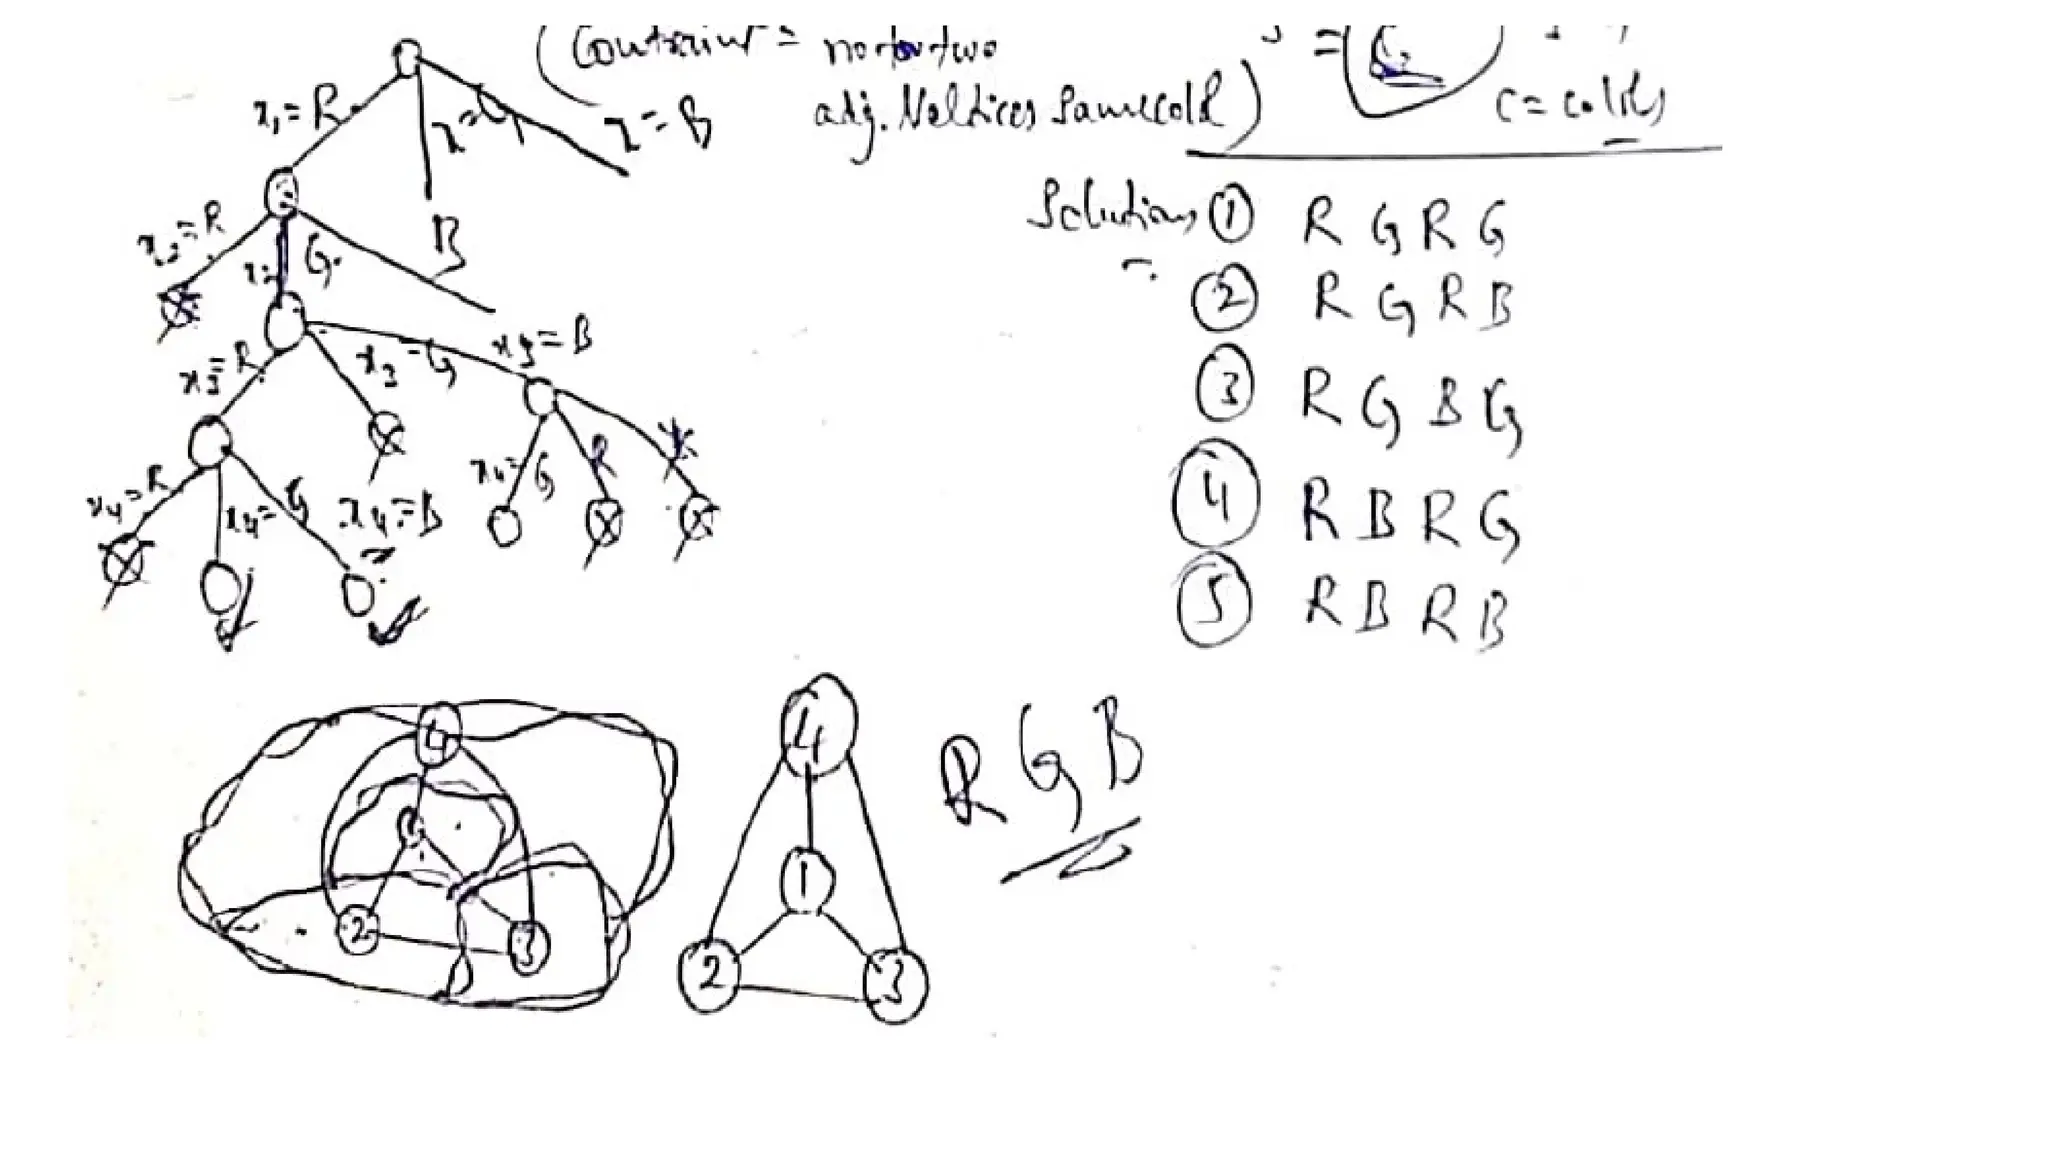 (Constraint = no two
adj. Vertices Same color)
C = colors
x₁=R
x=G
x=B
x₂=R
G
B
x₃=R
x₃=G
x₃=B
x₄=R
x₄=G
x₄=B
x₄=G
R
Solutions ① R G R G
② R G R B
③ R G B G
④ R B R G
⑤ R B R B
4
1
2
3
4
1
2
3
R G B